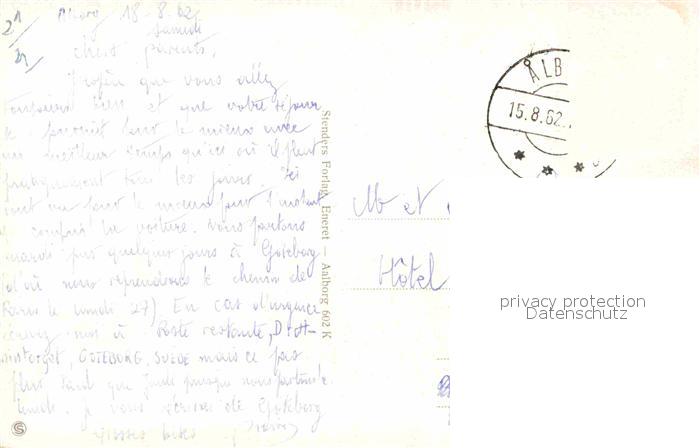 21
Ålborg 18-8-62
samedi
chers parents,
J'espère que vous allez
toujours bien et que votre séjour
se poursuit pour le mieux avec
un meilleur temps qu'ici où il pleut
pratiquement tous les jours. Ici
tout va pour le mieux pour l'instant
y compris la voiture. Nous partons
mardi pour quelques jours à Göteborg
(d'où nous reprendrons le chemin de
Paris le lundi 27) En cas d'urgence
écrivez moi à Poste restante,
GÖTEBORG, SUÈDE mais ce pas
plus tard que jeudi puisque nous partons le
lundi. Je vous écrirai de Göteborg
Grosses bises
Stenders Forlag. Eneret — Aalborg 602 K
S
ÅLB
15.8.62.
M et
Hôtel
privacy protection
Datenschutz